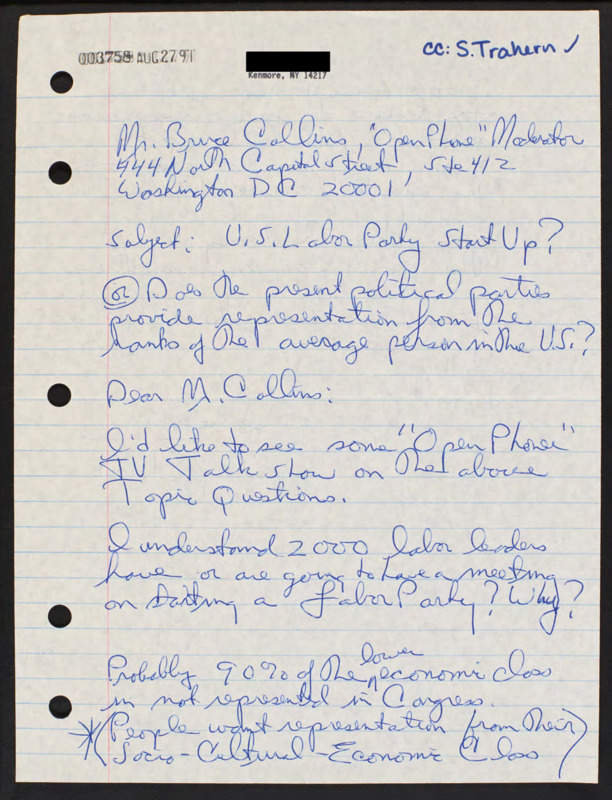 003758 AUG 27 91
cc: S. Trahern ✓
Kenmore, NY 14217
Mr. Bruce Collins, "Open Phone" Moderator
444 North Capital Street, Ste 412
Washington DC 20001
Subject: U.S. Labor Party Start Up?
(or) Does the present political parties
provide representation from the
ranks of the average person in the U.S.?
Dear Mr. Collins:
I'd like to see some "Open Phone"
TV Talk show on the above
Topic Questions.
I understand 2000 labor leaders
have or are going to have a meeting
on starting a Labor Party? Why?
Probably 90% of the lower economic class
in not represented in Congress.
*(People want representation from their)
Socio-Cultural-Economic Class